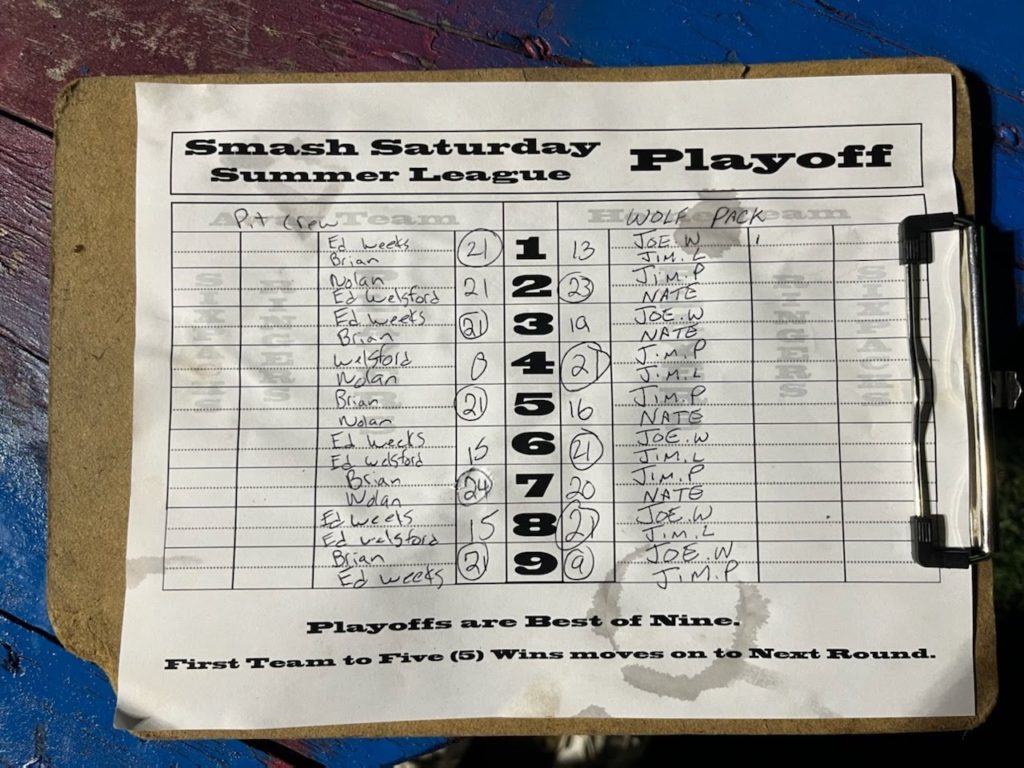 Smash Saturday
Summer League
Playoff
Pit Crew WOLF PACK
Ed Weeks 21 1 13 JOE.W
Brian JIM.L
Nolan 21 2 23 JIM.P
Ed Welsford NATE
Ed Weeks 21 3 19 JOE.W
Brian NATE
Welsford 8 4 21 JIM.P
Nolan JIM.L
Brian 21 5 16 JIM.P
Nolan NATE
Ed Weeks 15 6 21 JOE.W
Ed Welsford JIM.L
Brian 24 7 20 JIM.P
Nolan NATE
Ed Weeks 15 8 21 JOE.W
Ed Welsford JIM.L
Brian 21 9 9 JOE.W
Ed Weeks JIM.P
SIXPACKS RINGERS RINGERS SIXPACKS
Playoffs are Best of Nine.
First Team to Five (5) Wins moves on to Next Round.